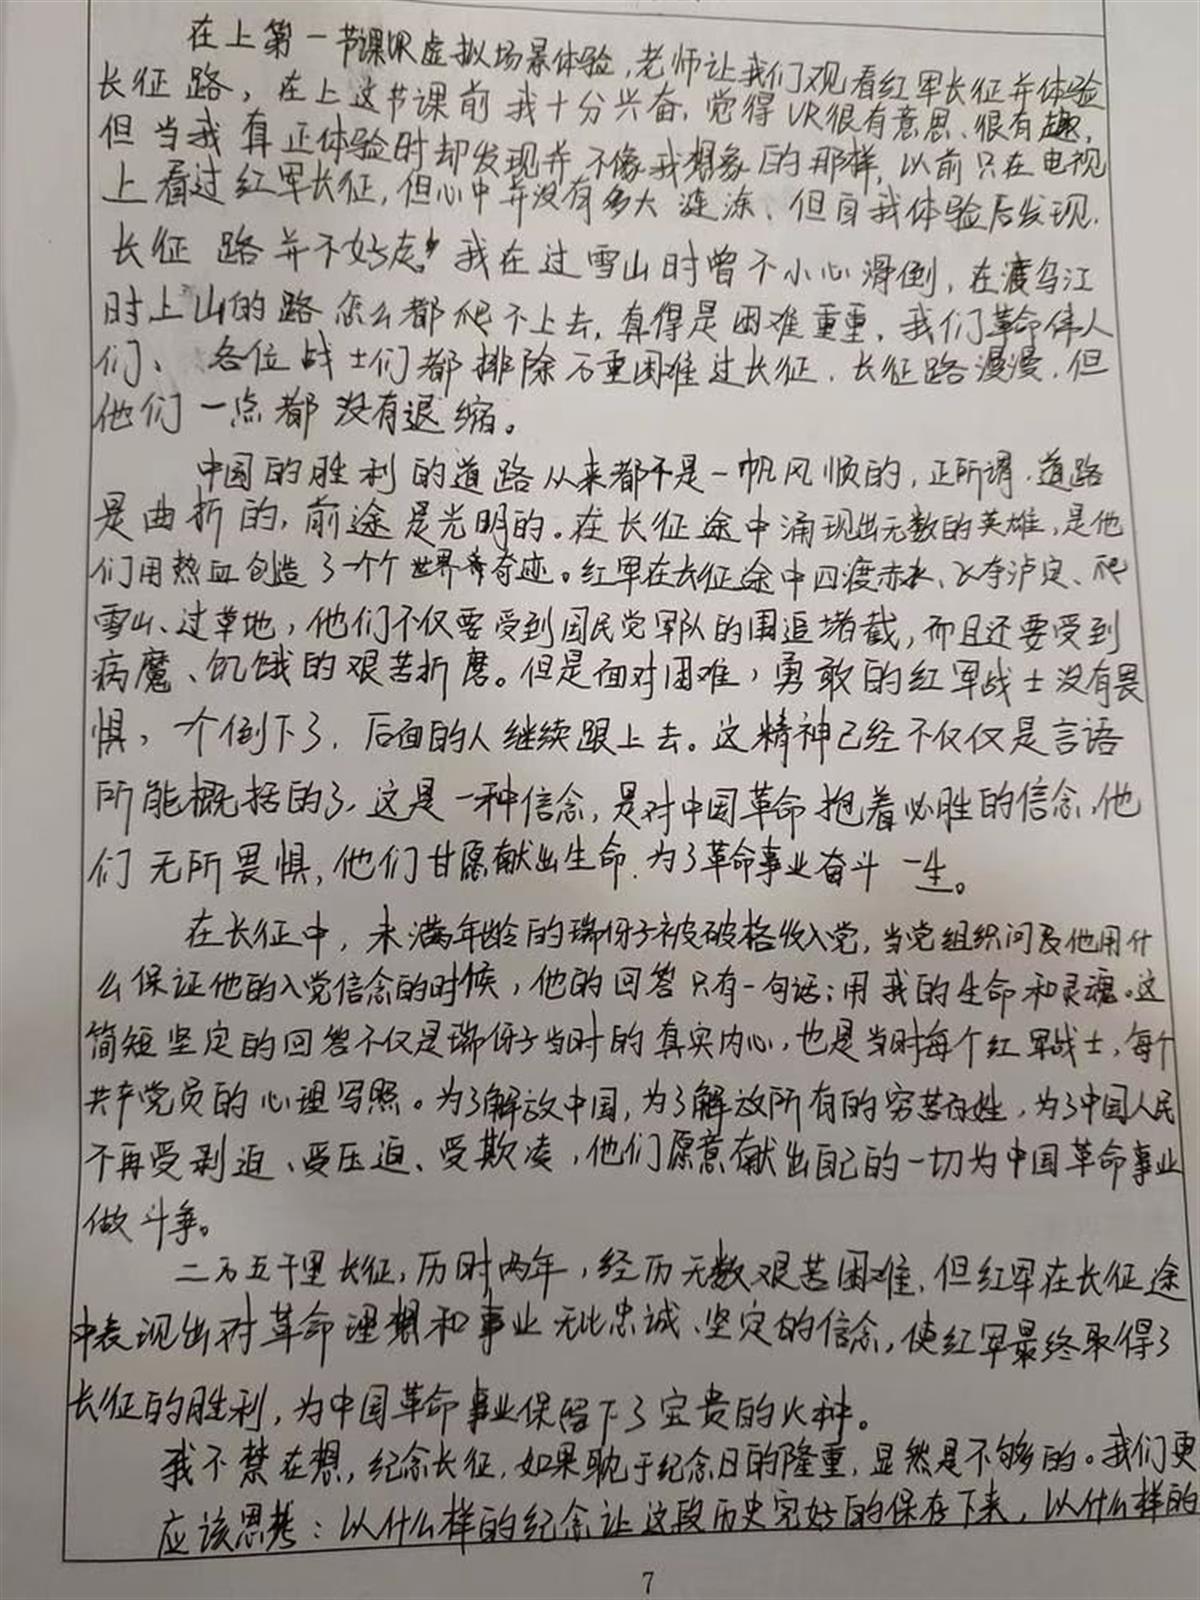 在上第一节课VR虚拟场景体验，老师让我们观看红军长征并体验
长征路，在上这节课前我十分兴奋，觉得VR很有意思、很有趣，
但当我真正体验时却发现并不像我想象的那样，以前只在电视
上看过红军长征，但心中并没有多大涟涷、但自我体验后发现，
长征路并不好走！我在过雪山时曾不小心滑倒，在渡乌江
时上山的路怎么都爬不上去，真得是困难重重，我们革命伟人
们、各位战士们都排除万重困难过长征，长征路漫漫，但
他们一点都没有退缩。
中国的胜利的道路从来都不是一帆风顺的，正所谓，道路
是曲折的，前途是光明的。在长征途中涌现出无数的英雄，是他
们用热血创造了一个个世界奇迹。红军在长征途中四渡赤水、飞夺泸定、爬
雪山、过草地，他们不仅要受到国民党军队的围追堵截，而且还要受到
病魔、饥饿的艰苦折磨。但是面对困难，勇敢的红军战士没有畏
惧，一个倒下了，后面的人继续跟上去。这精神已经不仅仅是言语
所能概括的了，这是一种信念，是对中国革命抱着必胜的信念，他
们无所畏惧，他们甘愿献出生命，为了革命事业奋斗一生。
在长征中，未满年龄的瑞伢子被破格收入党，当党组织问及他用什
么保证他的入党信念的时候，他的回答只有一句话：用我的生命和灵魂。这
简短坚定的回答不仅是瑞伢子当时的真实内心，也是当时每个红军战士，每个
共产党员的心理写照。为了解放中国，为了解放所有的穷苦百姓，为了中国人民
不再受剥迫、受压迫、受欺凌，他们愿意献出自己的一切为中国革命事业
做斗争。
二万五千里长征，历时两年，经历无数艰苦困难，但红军在长征途
中表现出对革命理想和事业无比忠诚、坚定的信念，使红军最终取得了
长征的胜利，为中国革命事业保留下了宝贵的火种。
我不禁在想，纪念长征，如果耽于纪念日的隆重，显然是不够的。我们更
应该思考：以什么样的纪念让这段历史完好的保存下来，以什么样的
7